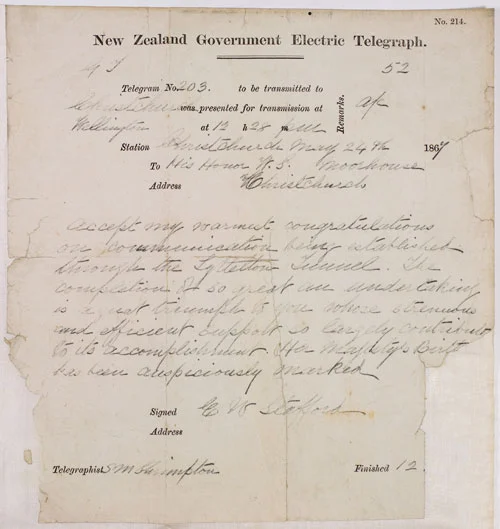 No. 214.
New Zealand Government Electric Telegraph.
52
Telegram No. 203. to be transmitted to
Christchurch was presented for transmission at
Wellington at 12 h 28 m pm
Remarks.
Station Christchurch May 24th 1867
To His Honor W. S. Moorhouse
Address Christchurch
Accept my warmest congratulations
on communication being established
through the Lyttelton Tunnel. The
completion of so great an undertaking
is a great triumph to you whose strenuous
and efficient support so largely contribut
to its accomplishment. Her Majesty's Birth
has been auspiciously marked
Signed E W Stafford
Address
Telegraphist S M Shrimpton
Finished 12.